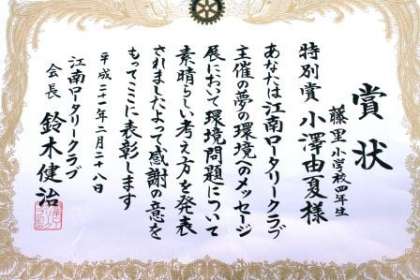 賞状
藤里小学校四年生
特別賞 小澤由夏様
あなたは江南ロータリークラブ
主催の夢の環境へのメッセージ
展において環境問題について
素晴らしい考え方を発表
されましたよって感謝の意を
もってここに表彰します
平成二十一年二月二十八日
江南ロータリークラブ
会長 鈴木健治